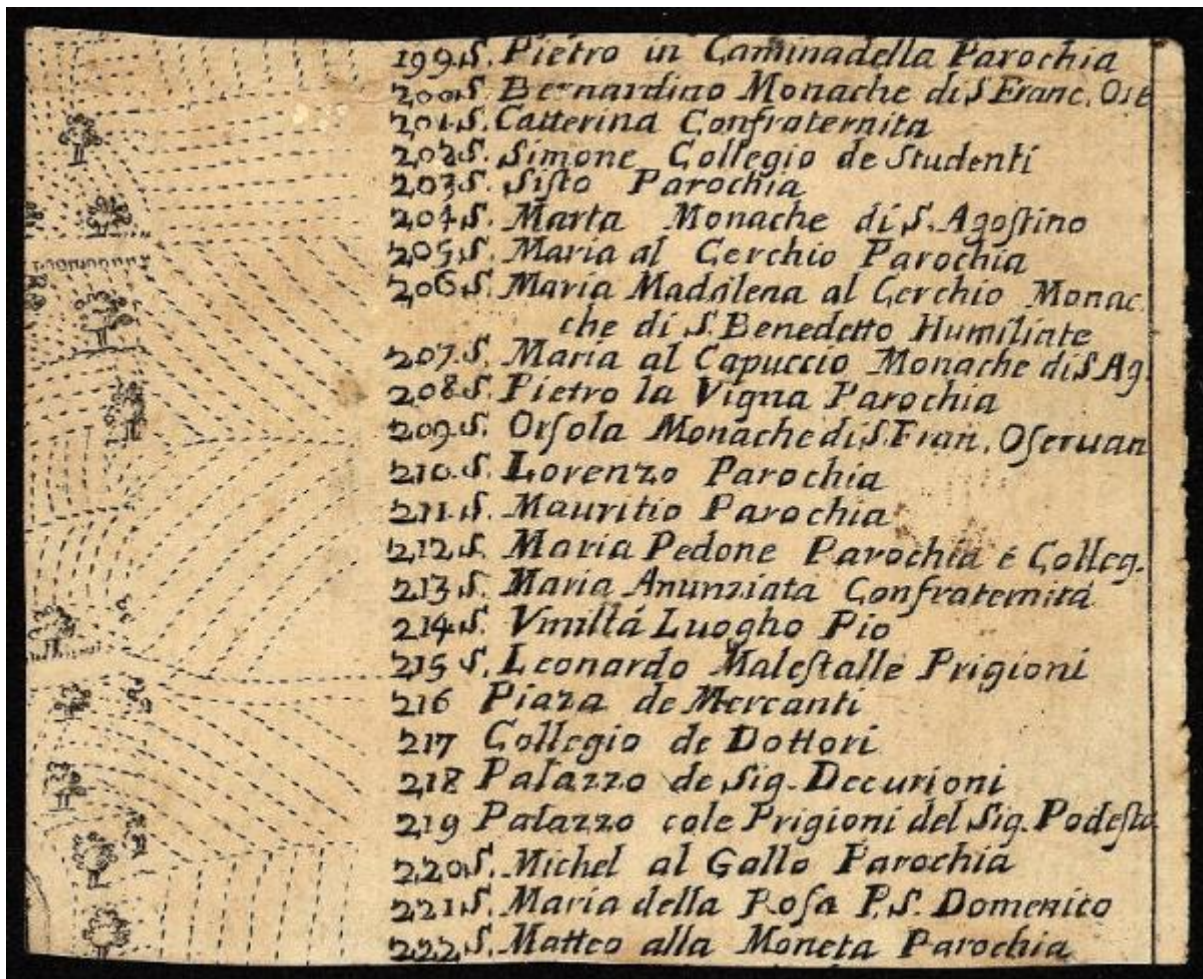 199 S. Pietro in Caminadella Parochia
200 S. Bernardino Monache di S Franc. Ose
201 S. Catterina Confraternita
202 S. Simone Collegio de Studenti
203 S. Sisto Parochia
204 S. Marta Monache di S. Agostino
205 S. Maria al Cerchio Parochia
206 S. Maria Madalena al Cerchio Monac
che di S. Benedetto Humiliate
207. S. Maria al Capuccio Monache di S Ag.
208 S. Pietro la Vigna Parochia
209. S. Orsola Monache di S. Fran. Oseruan
210. S. Lorenzo Parochia
211. S. Mauritio Parochia
212 S. Maria Pedone Parochia é Colleg.
213 S. Maria Anunziata Confraternitá
214 S. Vmiltá Luogho Pio
215 S. Leonardo Malestalle Prigioni
216 Piaza de Mercanti
217 Collegio de Dottori
218 Palazzo de Sig. Decurioni
219 Palazzo cole Prigioni del Sig. Podesta
220 S. Michel al Gallo Parochia
221 S. Maria della Rosa P. S. Domenico
222 S. Matteo alla Moneta Parochia